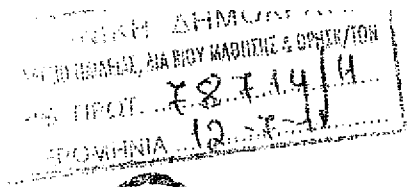 ΔΗΜΟΚΡ
ΠΑΙΔΕΙΑΣ, ΔΙΑ ΒΙΟΥ ΜΑΘΗΣΗΣ & ΘΡΗΣΚ/ΤΩΝ
ΠΡΩΤ. 78714/Η
ΡΟΜΗΝΙΑ 12-7-1